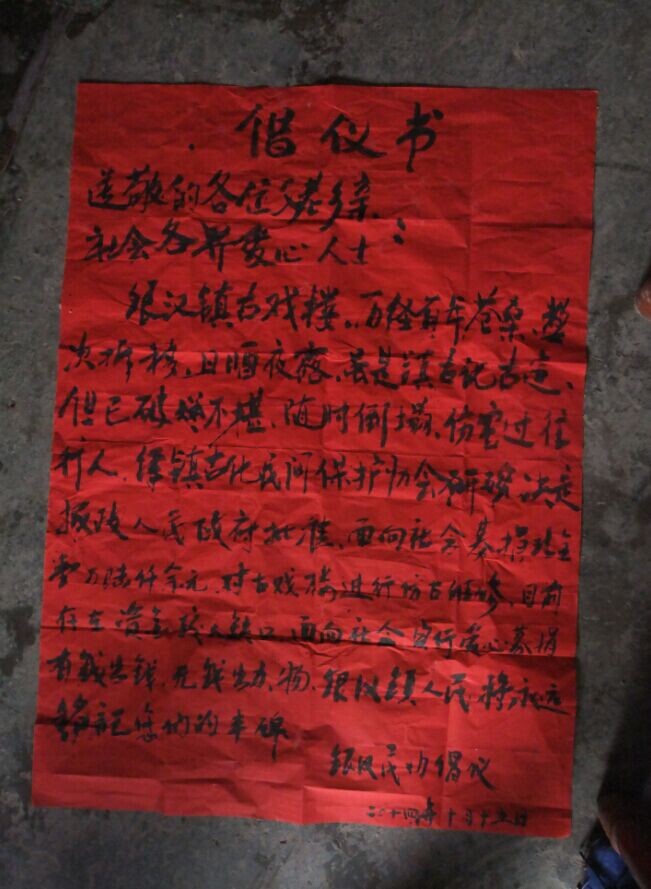 倡仪书
尊敬的各位父老乡亲、
社会各界爱心人士：
银汉镇古戏楼，历经百年苍桑，数
次拆移，日晒夜露，虽是镇古记古迹，
但已破烂不堪，随时倒塌，伤害过往
行人，经镇古化民间保护协会研究决定
报陵人民政府批准，面向社会募捐
万陆仟余元，对古戏楼进行仿古维修，目前
存在资金缺口，面向社会实行爱心募捐
有钱出钱，无钱出力、物，银汉镇人民将永远
铭记您们的丰碑
银汉民协倡议
二〇一四年十月十五日